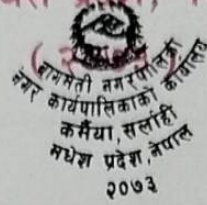 बागमती नगरपालिका
नगर कार्यपालिकाको कार्यालय
कर्मैया, सर्लाही
मधेश प्रदेश, नेपाल
२०७३